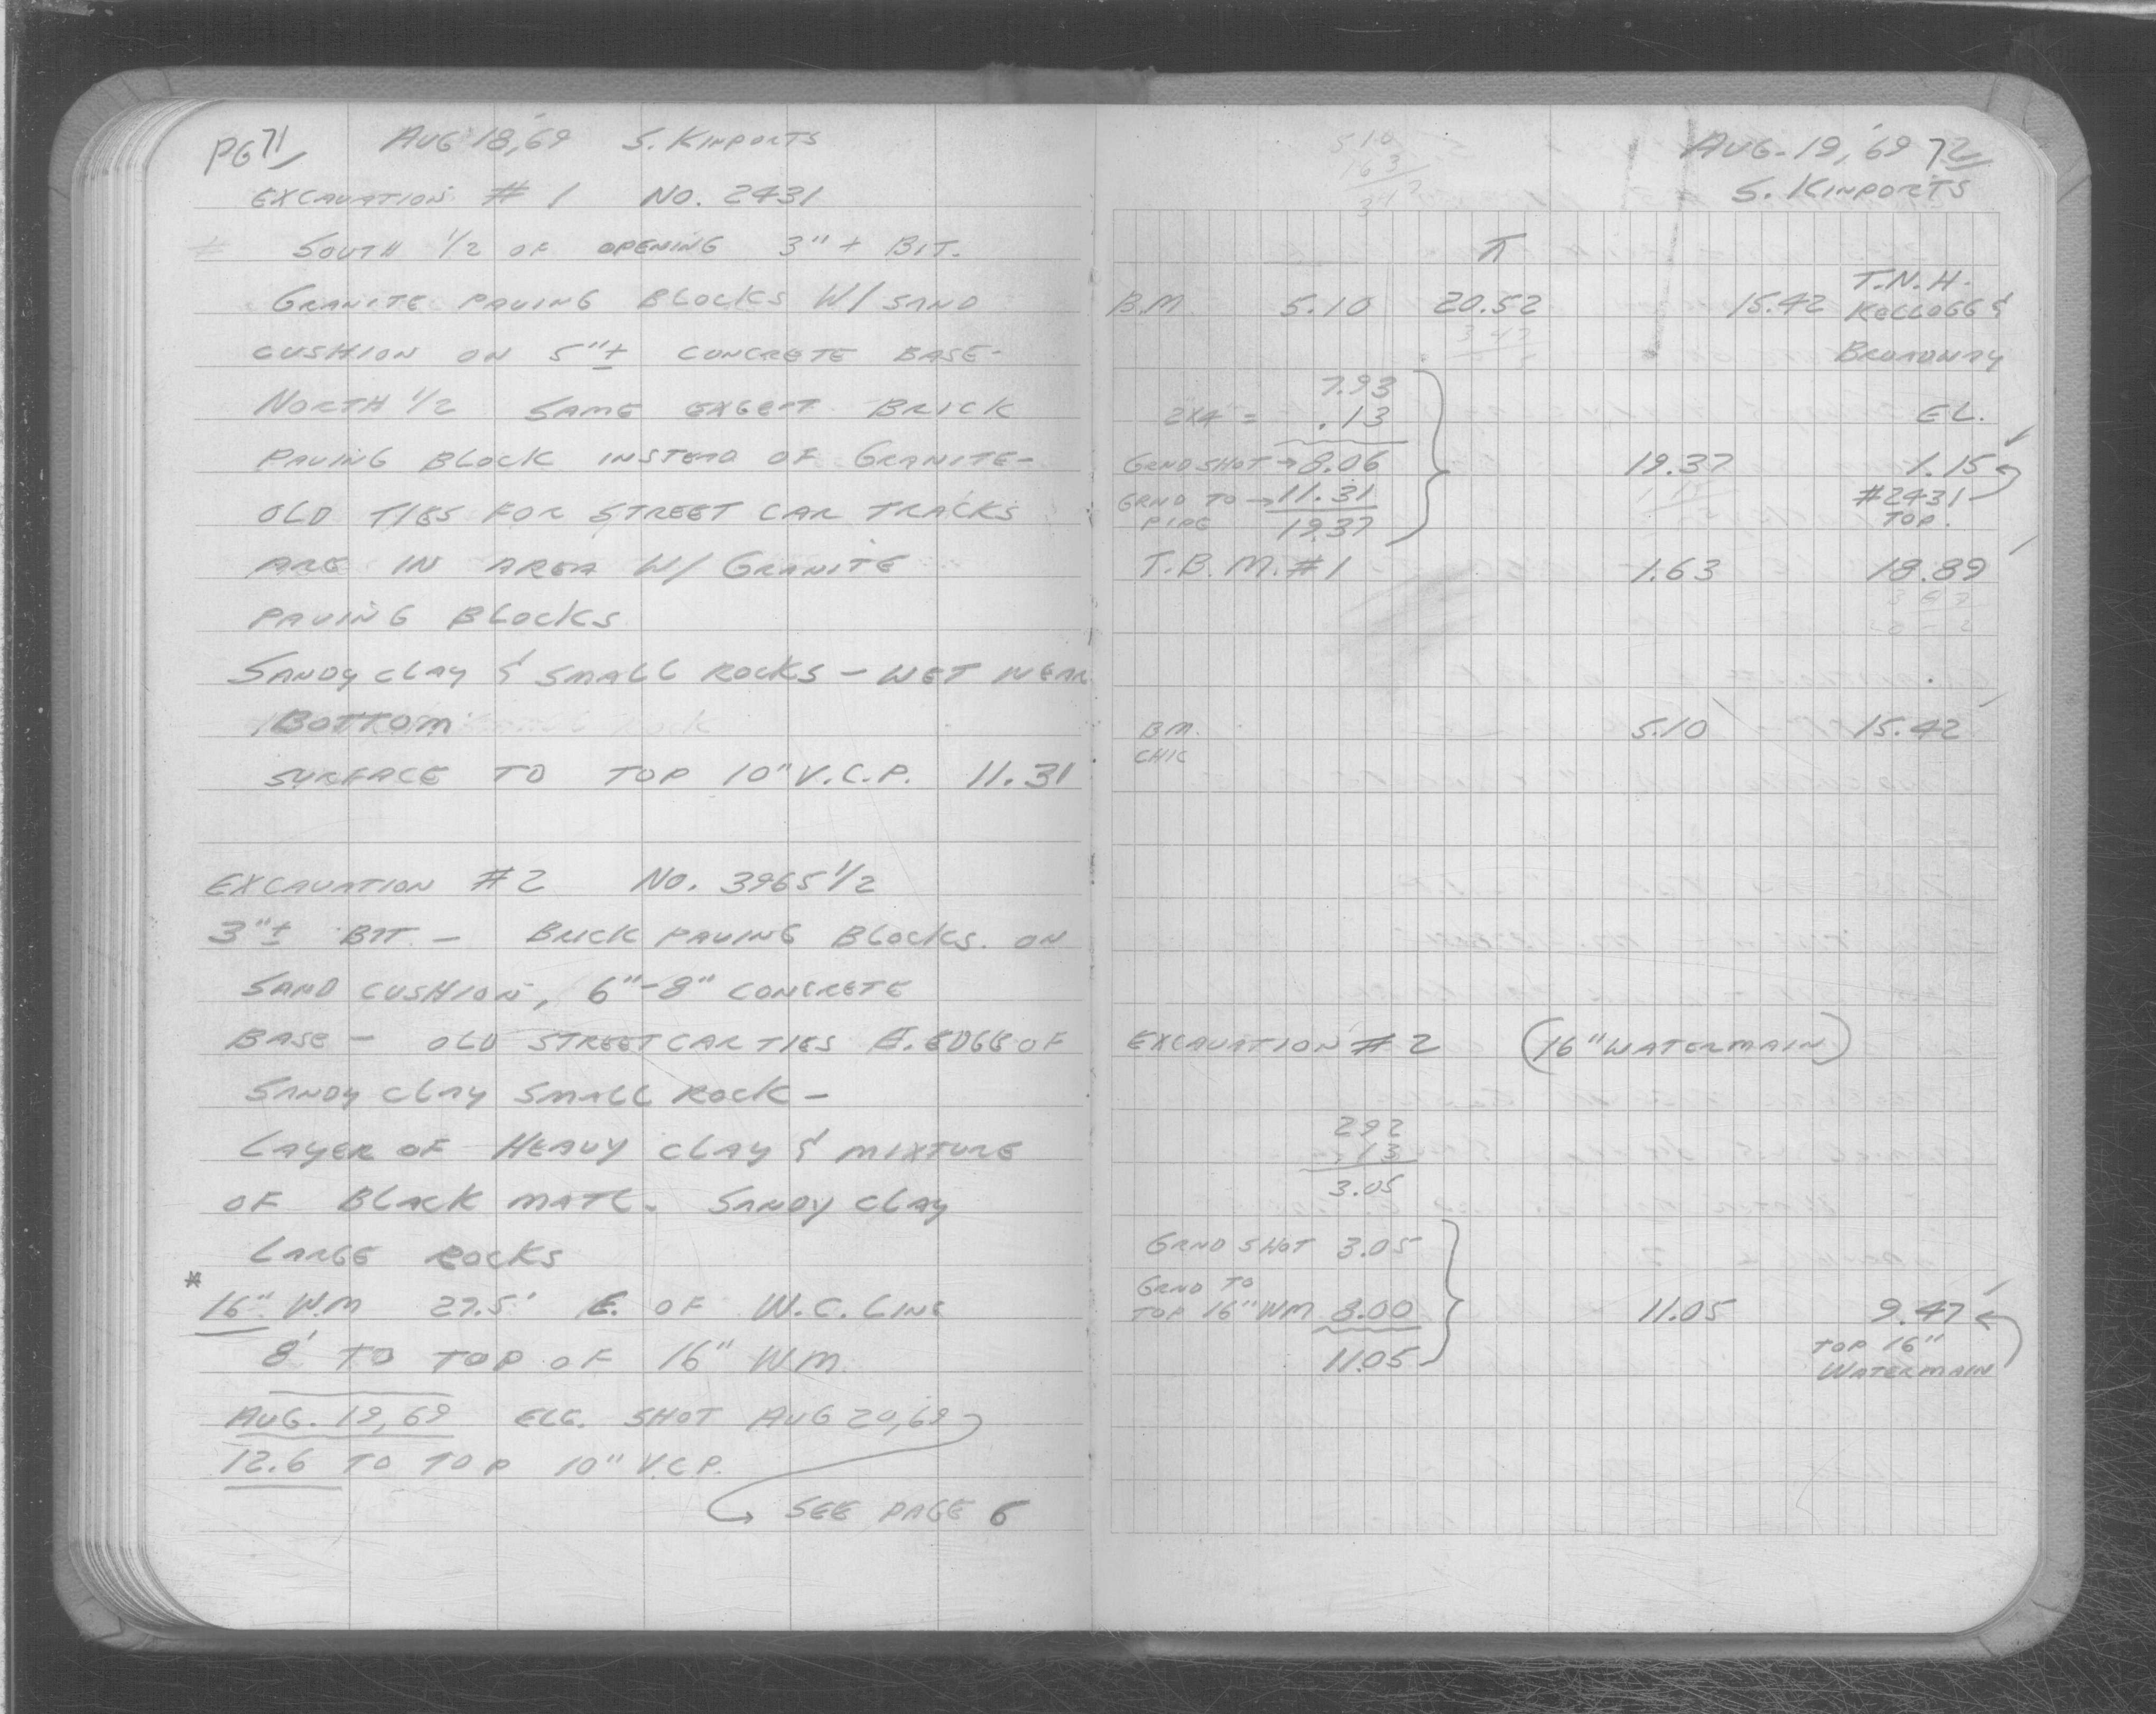 PG 71 AUG 18, '69 S. KINPORTS
EXCAVATION # 1 NO. 2431
SOUTH 1/2 OF OPENING 3" ± BIT.
GRANITE PAVING BLOCKS W/ SAND
CUSHION ON 5"± CONCRETE BASE-
NORTH 1/2 SAME EXCEPT BRICK
PAVING BLOCK INSTEAD OF GRANITE-
OLD TIES FOR STREET CAR TRACKS
ARE IN AREA W/ GRANITE
PAVING BLOCKS
SANDY CLAY & SMALL ROCKS - WET NEAR
BOTTOM
SURFACE TO TOP 10" V.C.P. 11.31
EXCAVATION #2 NO. 3965 1/2
3"± BIT - BRICK PAVING BLOCKS. ON
SAND CUSHION, 6"-8" CONCRETE
BASE - OLD STREETCAR TIES E. EDGE OF
SANDY CLAY SMALL ROCK -
LAYER OF HEAVY CLAY & MIXTURE
OF BLACK MATL. SANDY CLAY
LARGE ROCKS
* 16" W.M 27.5' E. OF W.C. LINE
8' TO TOP OF 16" W.M.
AUG. 19, 69 ELE. SHOT AUG 20, '69
12.6 TO TOP 10" V.C.P.
SEE PAGE 6
AUG-19, '69 72
S. KINPORTS
5.10
1 63
3 47
⊼
T.N.H.
B.M. 5.10 20.52 15.42 KELLOGG &
BROADWAY
7.93
2X4 = .13 EL.
GRND SHOT → 8.06 19.37 1.15
GRND TO → 11.31 #2431
PIPE 19.37 TOP.
T.B.M. #1 1.63 18.89
B.M. 5.10 15.42
CHK
EXCAVATION #2 (16" WATERMAIN)
2.92
.13
3.05
GRND SHOT 3.05
GRND TO
TOP 16" WM 8.00 11.05 9.47
11.05 TOP 16"
WATERMAIN